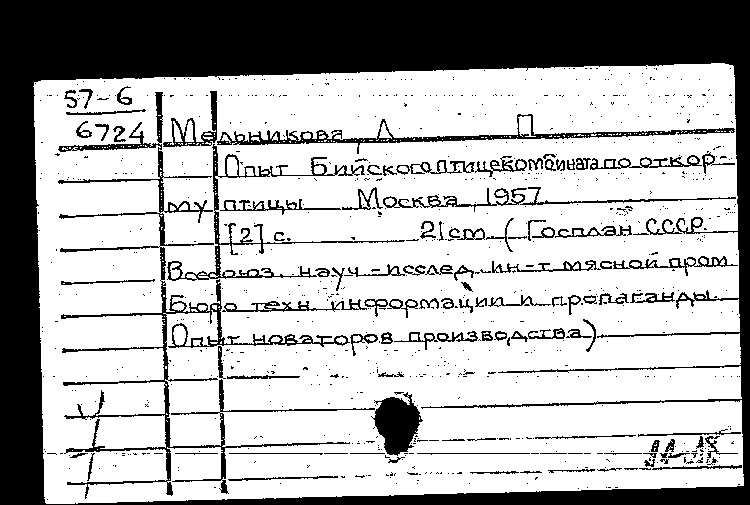 57-6
6724
Мельникова, Л П
Опыт Бийского птицекомбината по откор-
му птицы Москва, 1957.
[2] с. 21 cm. (Госплан СССР.
Всесоюз. науч.-исслед. ин-т мясной пром.
Бюро техн. информации и пропаганды.
Опыт новаторов производства)